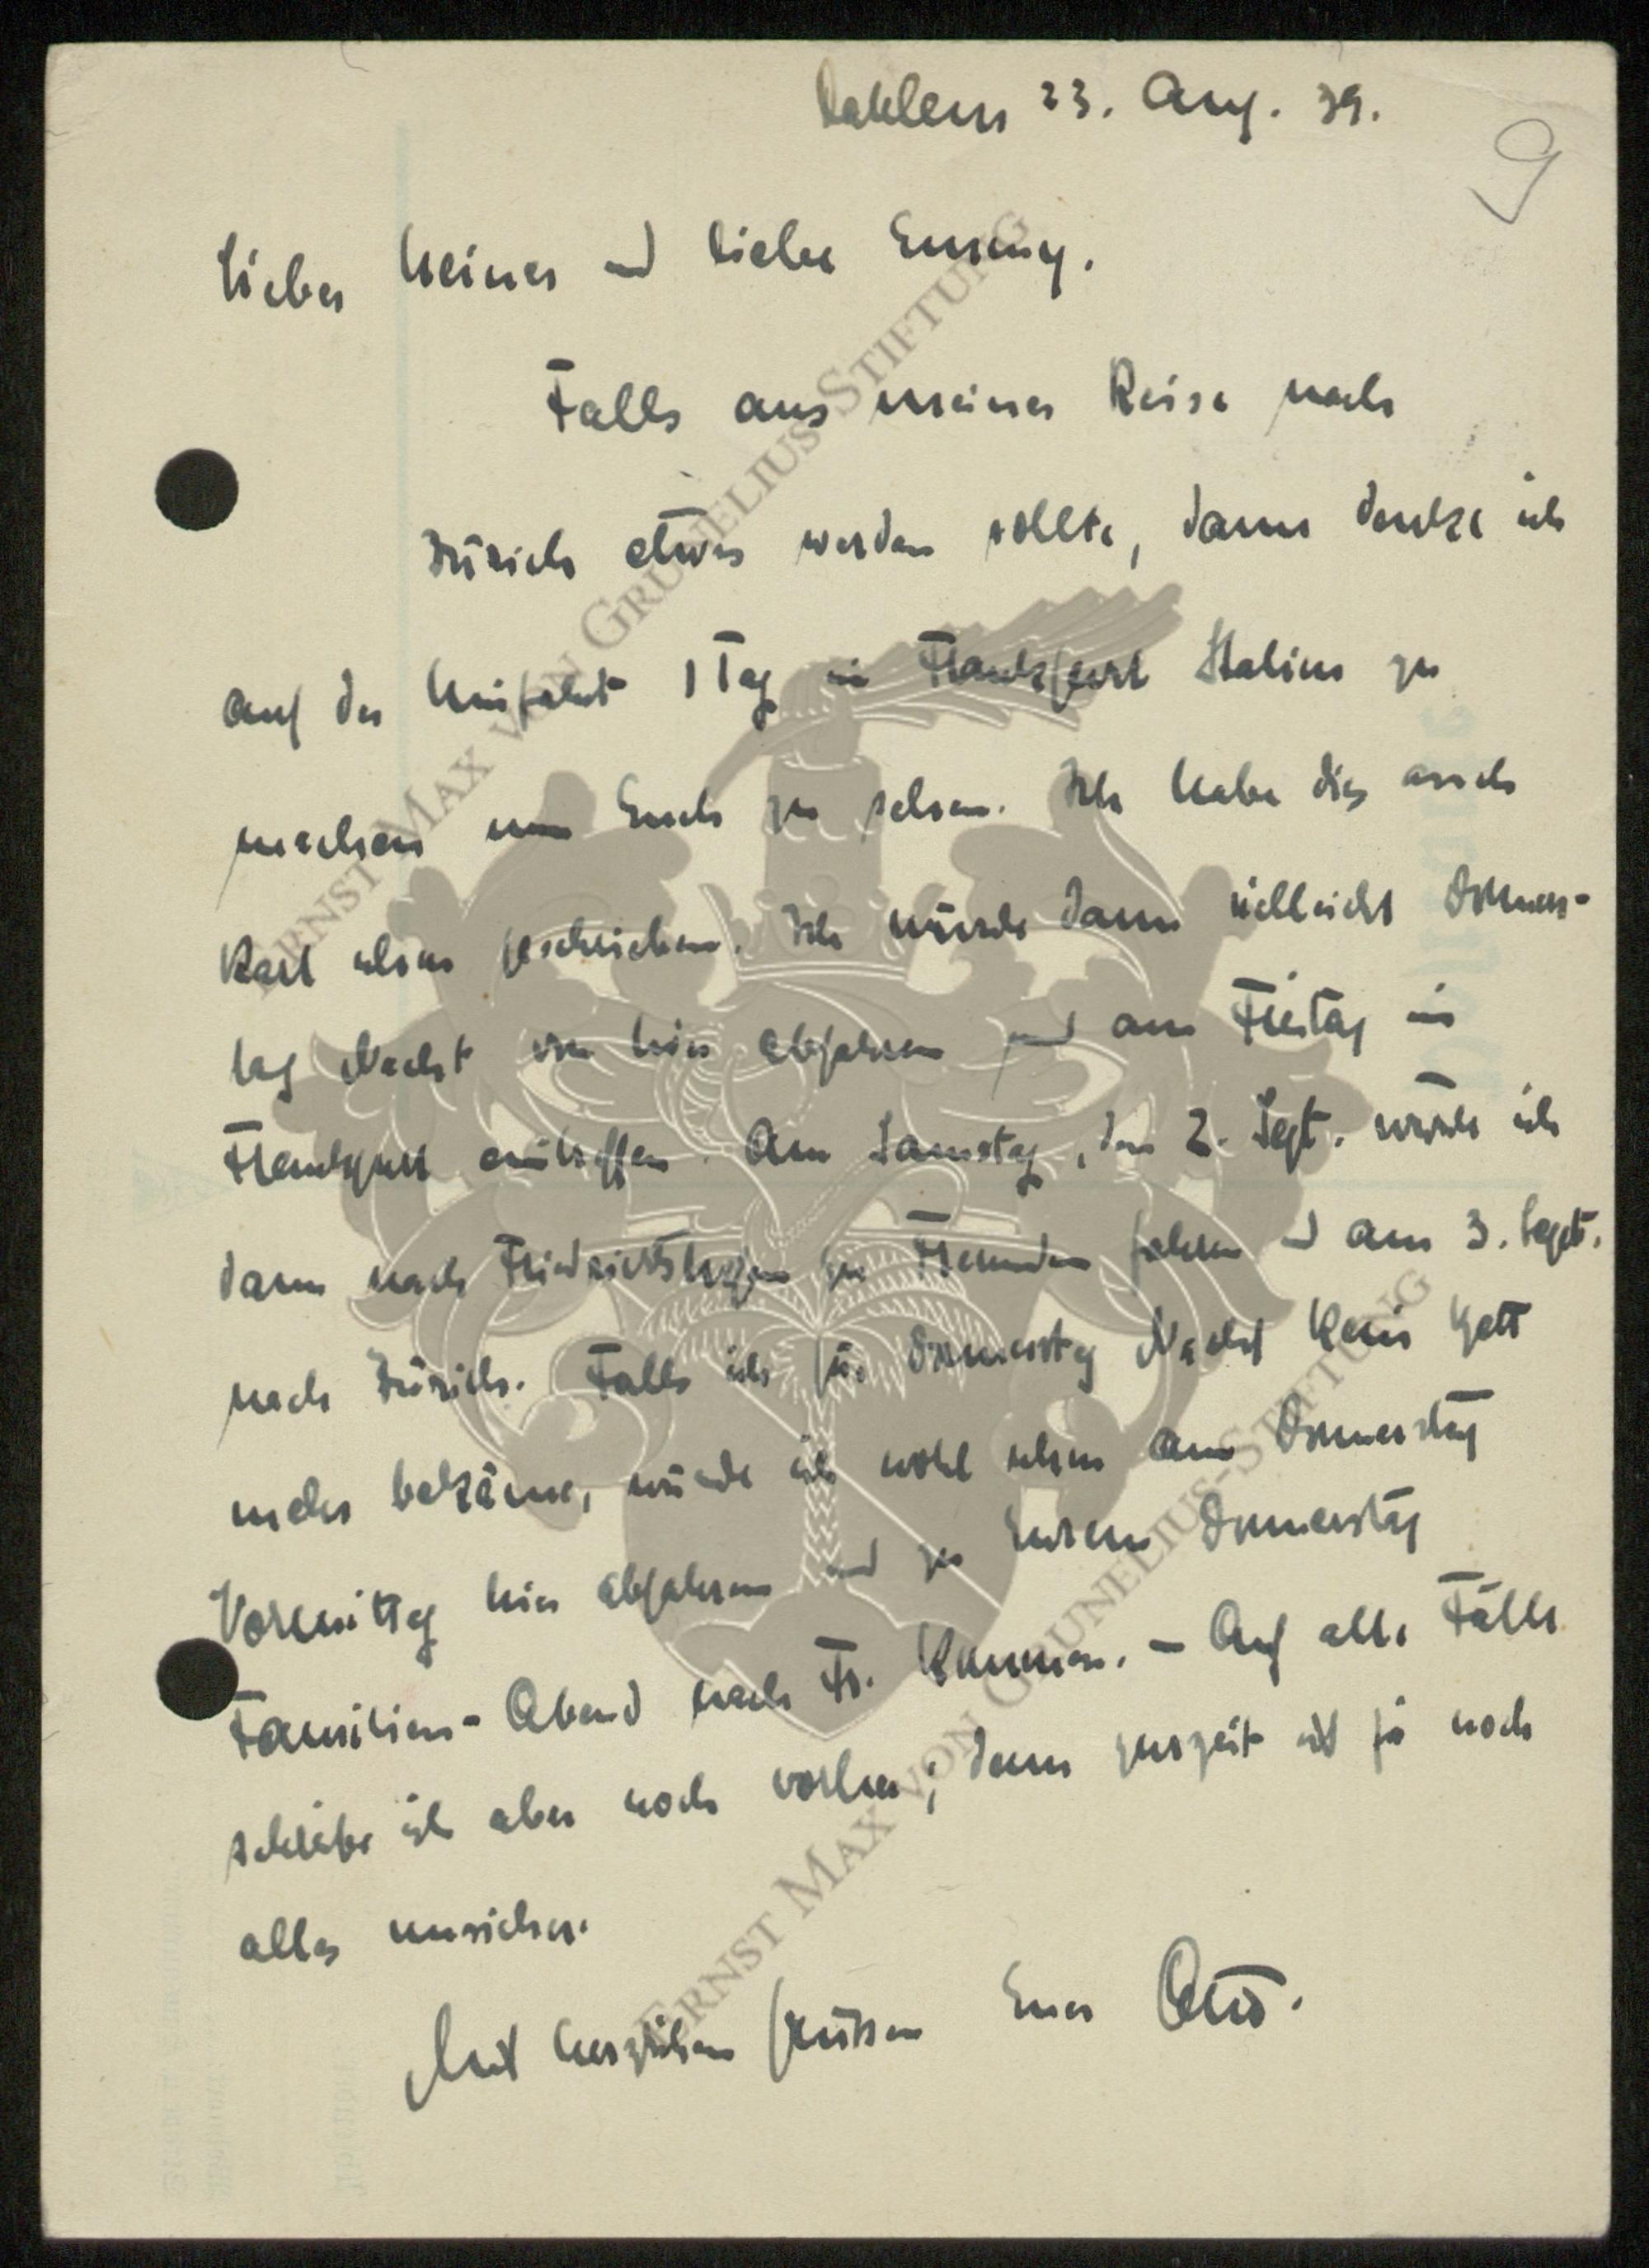 Dahlem 23. Aug. 39.
9
Lieber Heiner und liebe Emmy.
Falls aus meiner Reise nach
Zürich etwas werden sollte, dann denke ich
auf der Hinfahrt 1 Tag in Frankfurt Station zu
machen um Euch zu sehen. Ich habe dies auch
Karl schon geschrieben. Ich würde dann vielleicht Donners-
tag Nacht von hier abfahren und am Freitag in
Frankfurt eintreffen. Am Samstag, den 2. Sept. würde ich
dann nach Friedrichshafen zu Freunden fahren und am 3. Sept.
nach Zürich. Falls ich für Donnerstag Nacht kein Bett
mehr bekäme, würde ich wohl schon am Donnerstag
Vormittag hier abfahren und zu Eurem Donnerstag
Familien-Abend nach Fr. kommen. – Auf alle Fälle
schreibe ich aber noch vorher; denn zurzeit ist ja noch
alles unsicher.
Mit herzlichen Grüssen Euer Otto.
ERNST MAX VON GRUNELIUS-STIFTUNG
ERNST MAX VON GRUNELIUS-STIFTUNG